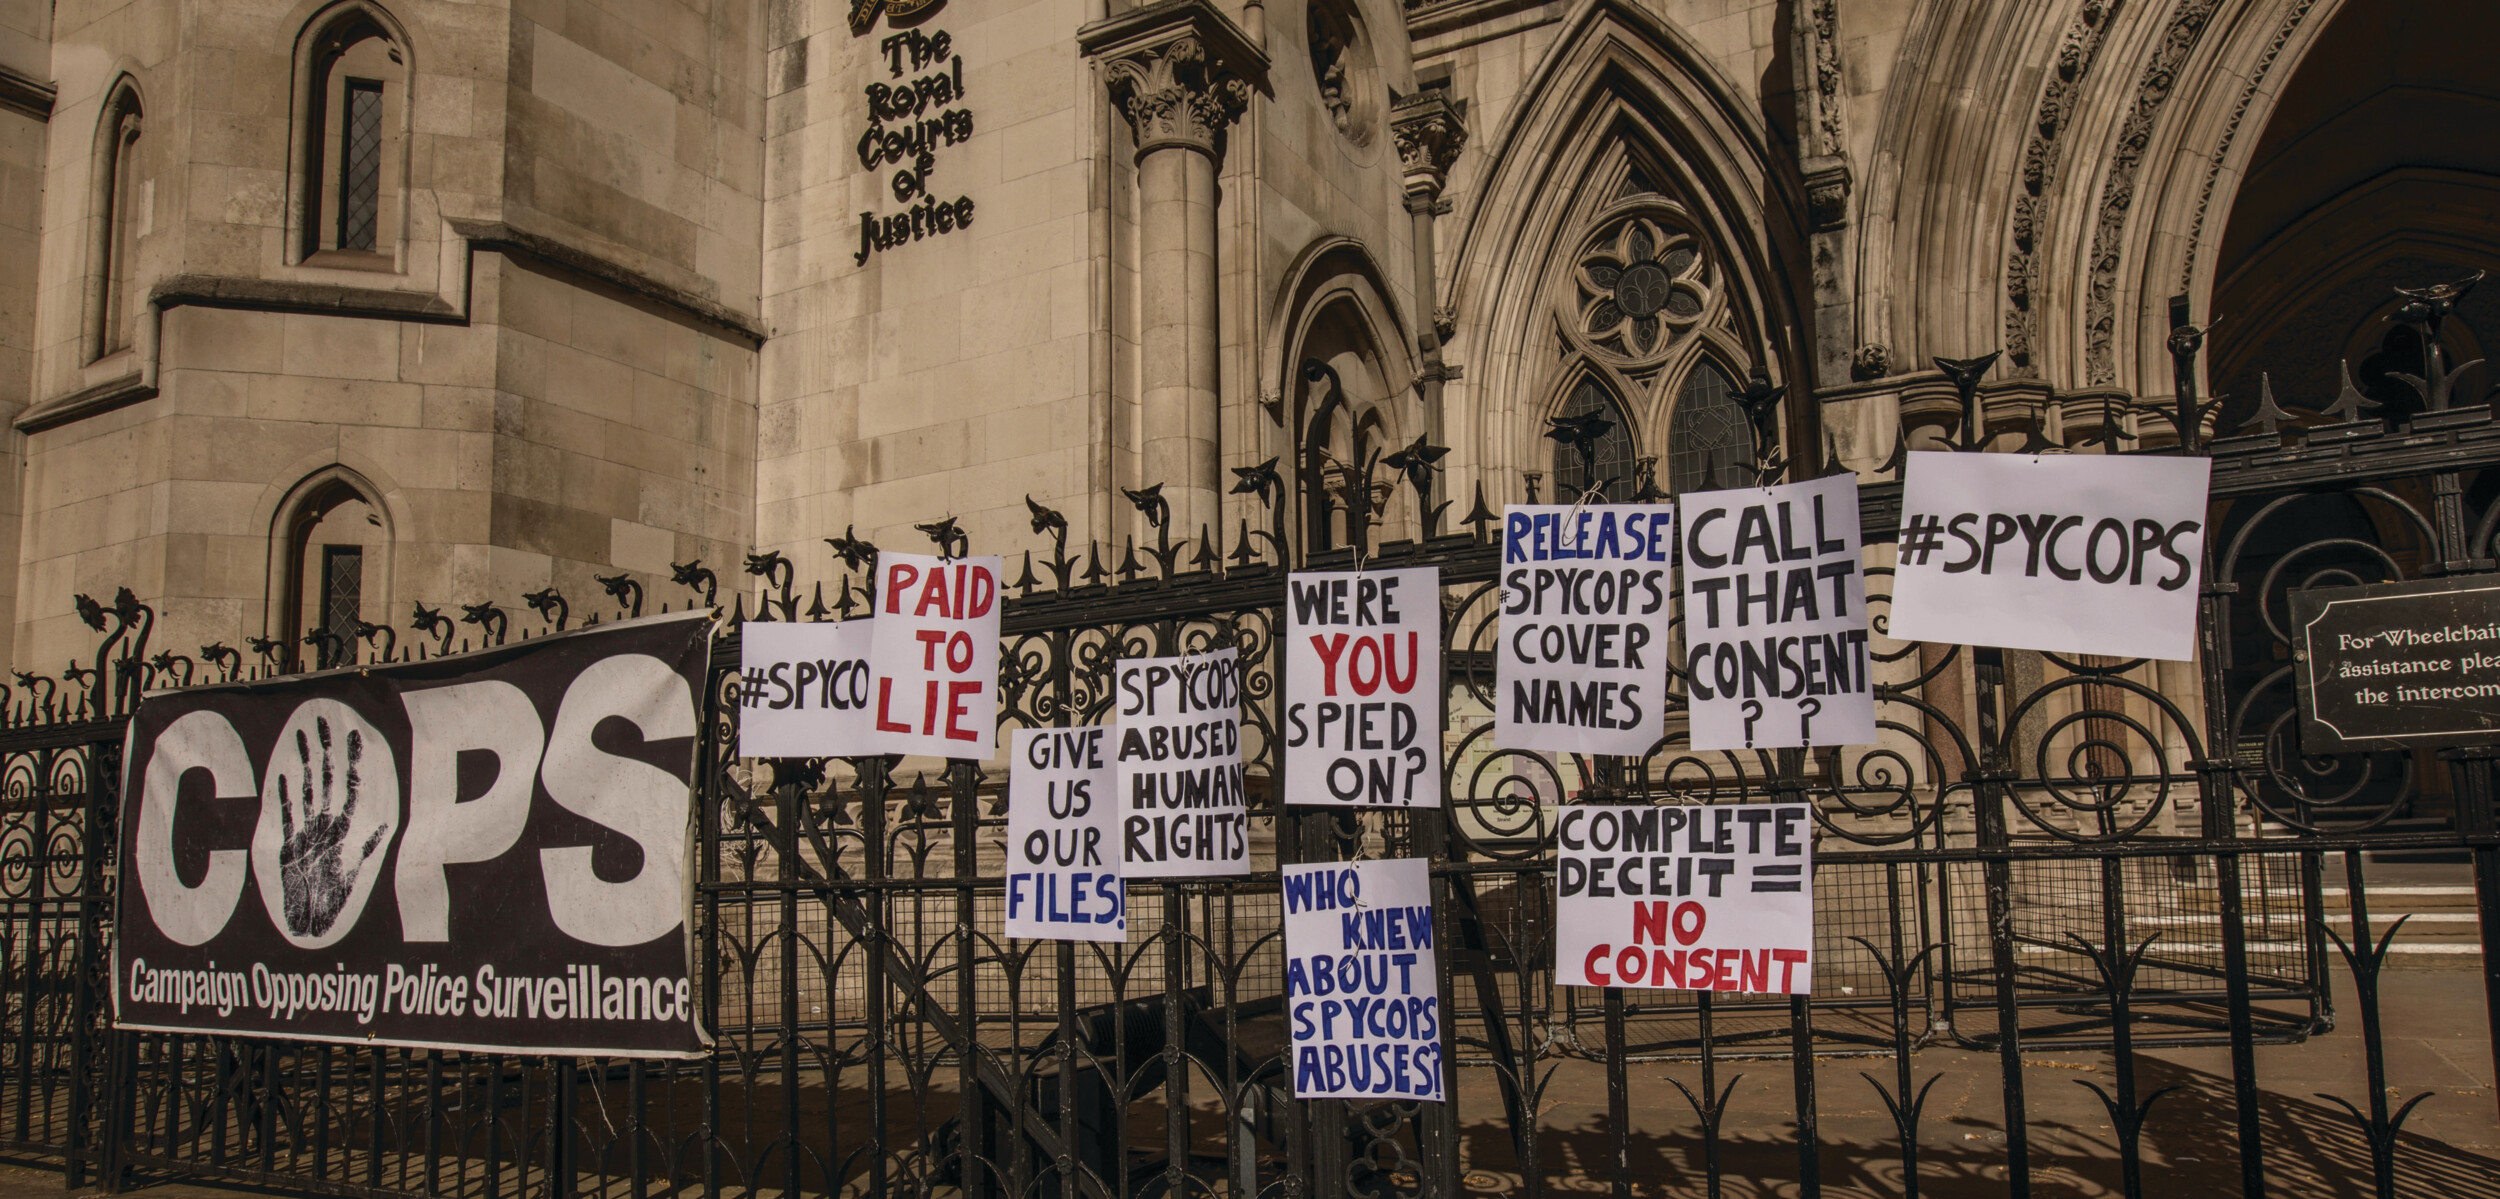 The
Royal
Courts
of
Justice
COPS
Campaign Opposing Police Surveillance
#SPYCO
PAID
TO
LIE
GIVE
US
OUR
FILES!
SPYCOPS
ABUSED
HUMAN
RIGHTS
WERE
YOU
SPIED
ON?
WHO
KNEW
ABOUT
SPYCOPS
ABUSES?
RELEASE
#SPYCOPS
COVER
NAMES
CALL
THAT
CONSENT
? ?
COMPLETE
DECEIT =
NO
CONSENT
#SPYCOPS
For Wheelchair
assistance plea
the intercom